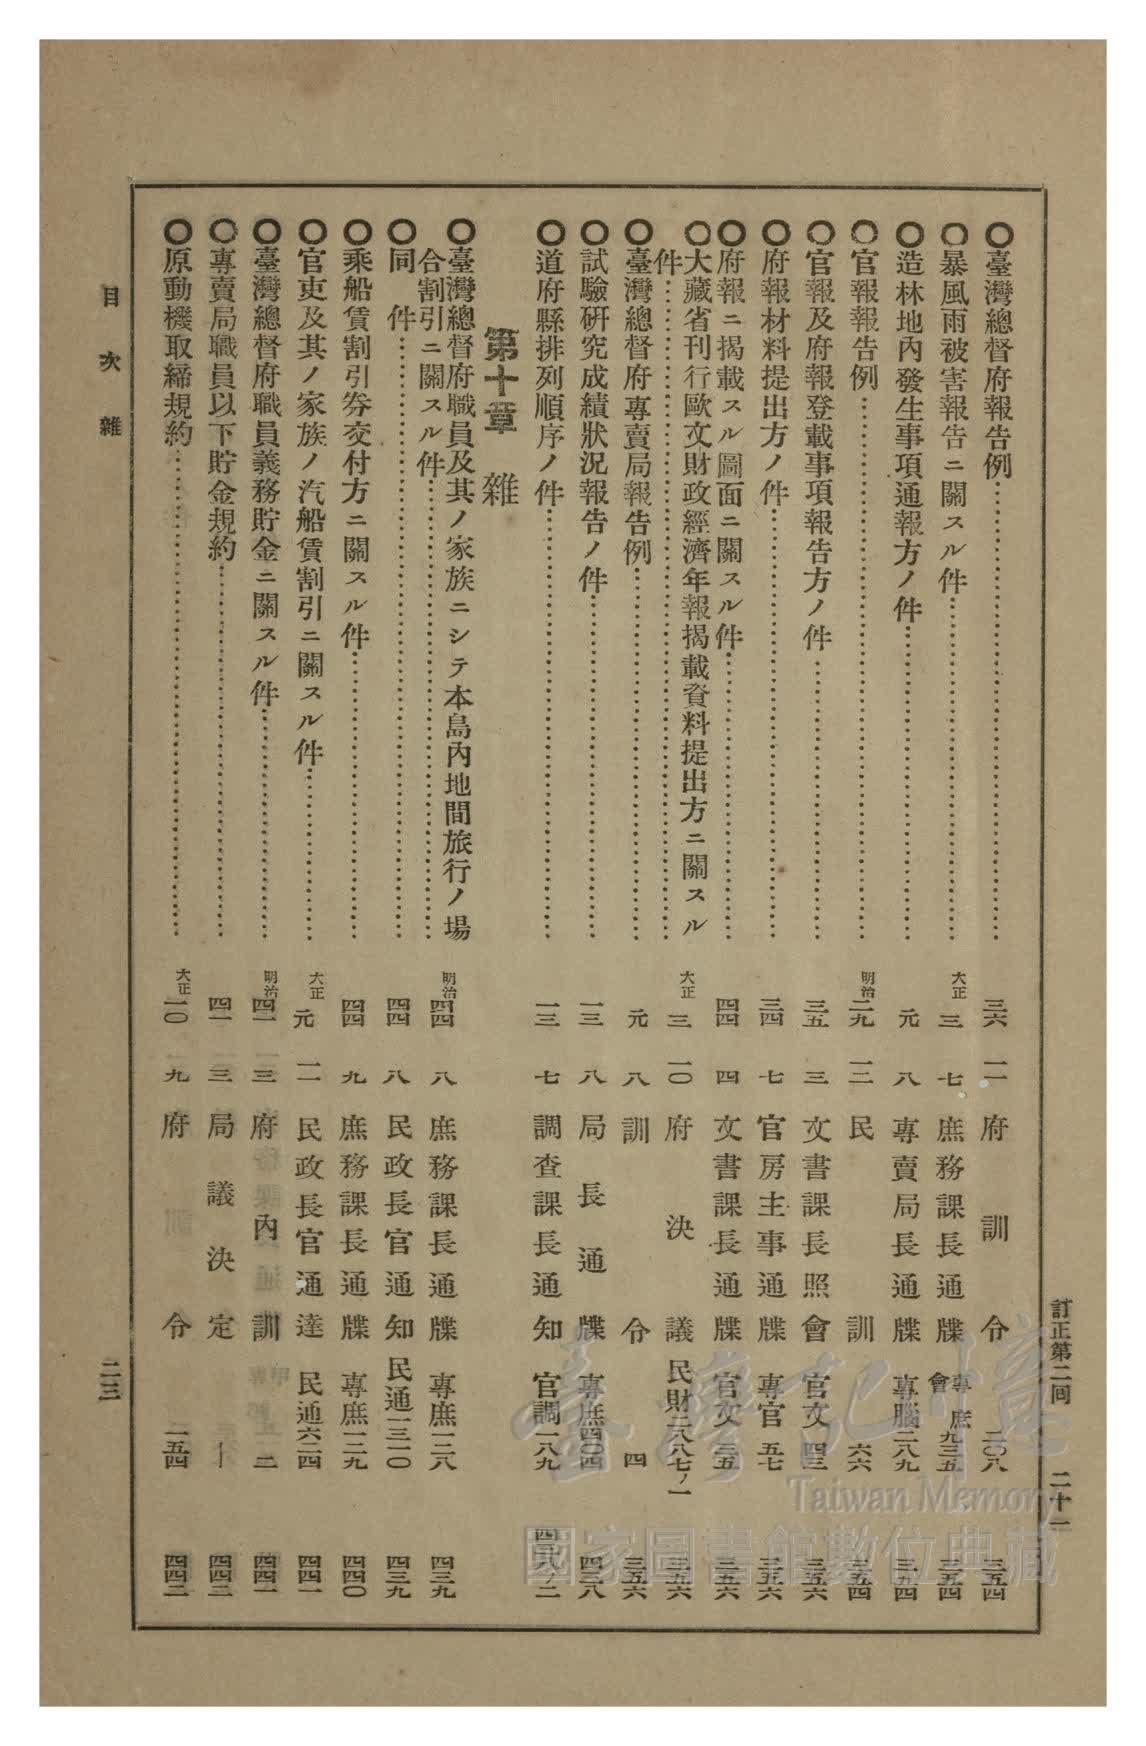 訂正第二回　二十一
○臺灣總督府報告例……三六　一一　府訓令　二〇八　三五四
○暴風雨被害報告ニ關スル件……大正三　七　庶務課長通牒　專庶會九三五　三五四
○造林地內發生事項通報方ノ件……元　八　專賣局長通牒　專腦二八九　三五四
○官報報告例……明治二九　一二　民訓　六六　三五四
○官報及府報登載事項報告方ノ件……三五　三　文書課長照會　官文四三　三五六
○府報材料提出方ノ件……三四　七　官房主事通牒　專官五七　三五六
○府報ニ揭載スル圖面ニ關スル件……四四　四　文書課長通牒　官文三五　三五六
○大藏省刊行歐文財政經濟年報揭載資料提出方ニ關スル
件……大正三　一〇　府決議　民財二八八七ノ一　三五六
○臺灣總督府專賣局報告例……元　八　訓令　四　三五六
○試驗硏究成績狀況報告ノ件……一三　八　局長通牒　專庶四〇四　四三八
○道府縣排列順序ノ件……一三　七　調查課長通知　官調一八九　四三八ノ二
第十章　雜
○臺灣總督府職員及其ノ家族ニシテ本島內地間旅行ノ場
合割引ニ關スル件……明治四四　八　庶務課長通牒　專庶一二八　四三九
○同　件……四四　八　民政長官通知　民通三三一〇　四三九
○乘船賃割引券交付方ニ關スル件……四四　九　庶務課長通牒　專庶一二九　四四〇
○官吏及其ノ家族ノ汽船賃割引ニ關スル件……大正元　一一　民政長官通達　民通六二四　四四一
○臺灣總督府職員義務貯金ニ關スル件……明治四一　三　府內訓　二　四四一
○專賣局職員以下貯金規約……四一　三　局議決定　－　四四二
○原動機取締規約……大正一〇　一九　府訓令　一五四　四四二
目次　雜　二三
臺灣記憶
Taiwan Memory
國家圖書館數位典藏